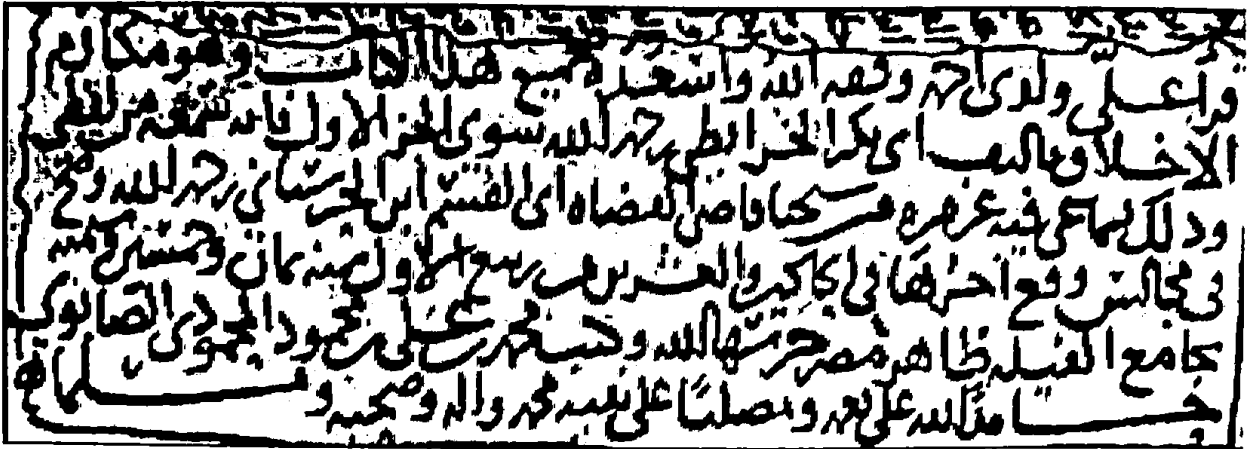 قرأ علي ولدي احمد وفقه الله واسعده جميع هذا الكتاب وهو مكارم
الاخلاق تاليف ابي بكر الخرايطي رحمه الله سوى الجزء الاول فانه سمعه من لفظي
وذلك بسماعي فيه غير مرة من شيخنا قاضي القضاه ابي القسم ابن الحرستاني رحمه الله وصح
في مجالس وقع اخرها في الحادي والعشرين من ربيع الاول سنه ثمان وخمسين وستمئه
بجامع الفيله ظاهر مصر حرسها الله وكتب محمد بن علي بن محمود المحمودي الصابوني
حامدا لله على نعمه ومصليا على نبيه محمد واله وصحبه ومسلما